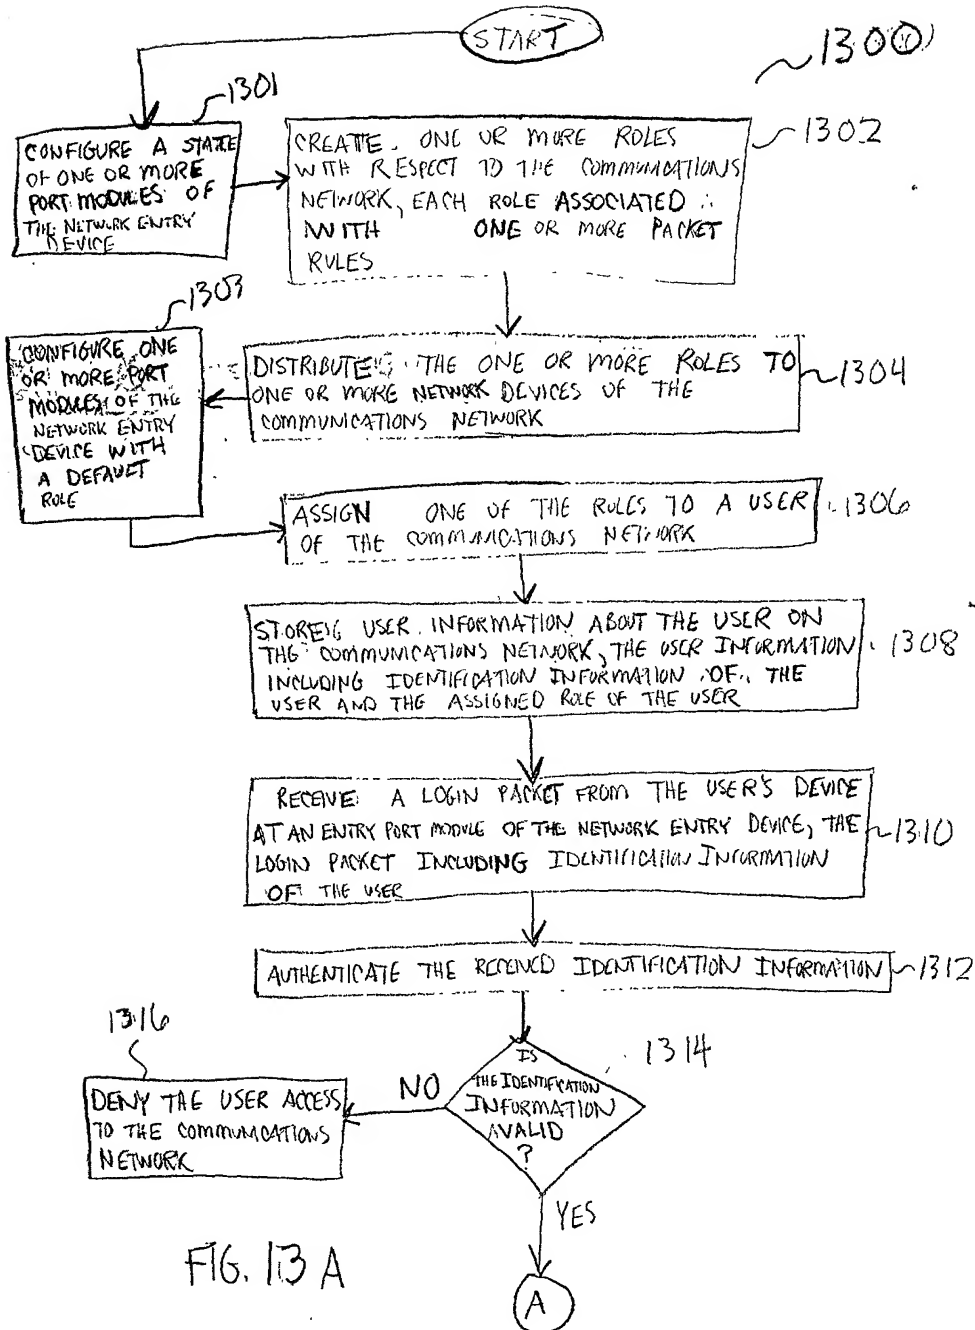 START
1300
1301
CONFIGURE A STATE
OF ONE OR MORE
PORT MODULES OF
THE NETWORK ENTRY
DEVICE
CREATE ONE OR MORE ROLES
WITH RESPECT TO THE COMMUNICATIONS
NETWORK, EACH ROLE ASSOCIATED
WITH ONE OR MORE PACKET
RULES
1302
1303
CONFIGURE ONE
OR MORE PORT
MODULES OF THE
NETWORK ENTRY
DEVICE WITH
A DEFAULT
ROLE
DISTRIBUTE THE ONE OR MORE ROLES TO
ONE OR MORE NETWORK DEVICES OF THE
COMMUNICATIONS NETWORK
1304
ASSIGN ONE OF THE RULES TO A USER
OF THE COMMUNICATIONS NETWORK
1306
STORE USER INFORMATION ABOUT THE USER ON
THE COMMUNICATIONS NETWORK, THE USER INFORMATION
INCLUDING IDENTIFICATION INFORMATION OF THE
USER AND THE ASSIGNED ROLE OF THE USER
1308
RECEIVE A LOGIN PACKET FROM THE USER'S DEVICE
AT AN ENTRY PORT MODULE OF THE NETWORK ENTRY DEVICE, THE
LOGIN PACKET INCLUDING IDENTIFICATION INFORMATION
OF THE USER
1310
AUTHENTICATE THE RECEIVED IDENTIFICATION INFORMATION
1312
IS
THE IDENTIFICATION
INFORMATION
VALID
?
1314
1316
NO
DENY THE USER ACCESS
TO THE COMMUNICATIONS
NETWORK
YES
A
FIG. 13 A